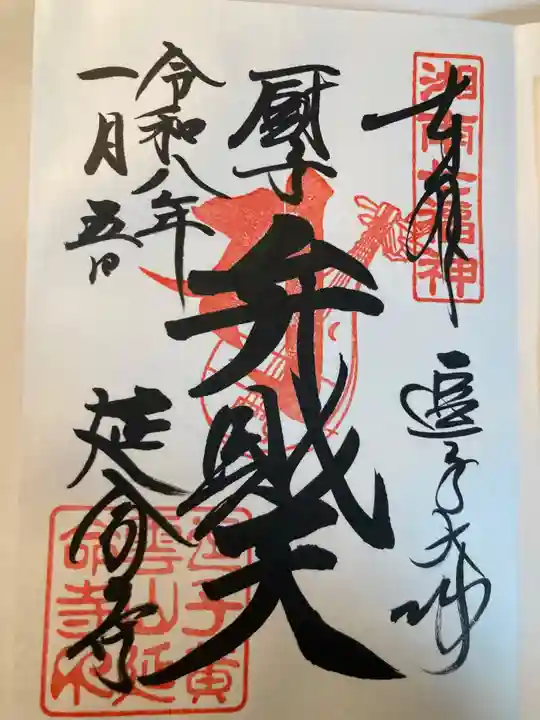 奉拝
湘南七福神
逗子大師
厨子
弁財天
令和八年
一月五日
延命寺
逗子黄
雲山延
命寺印